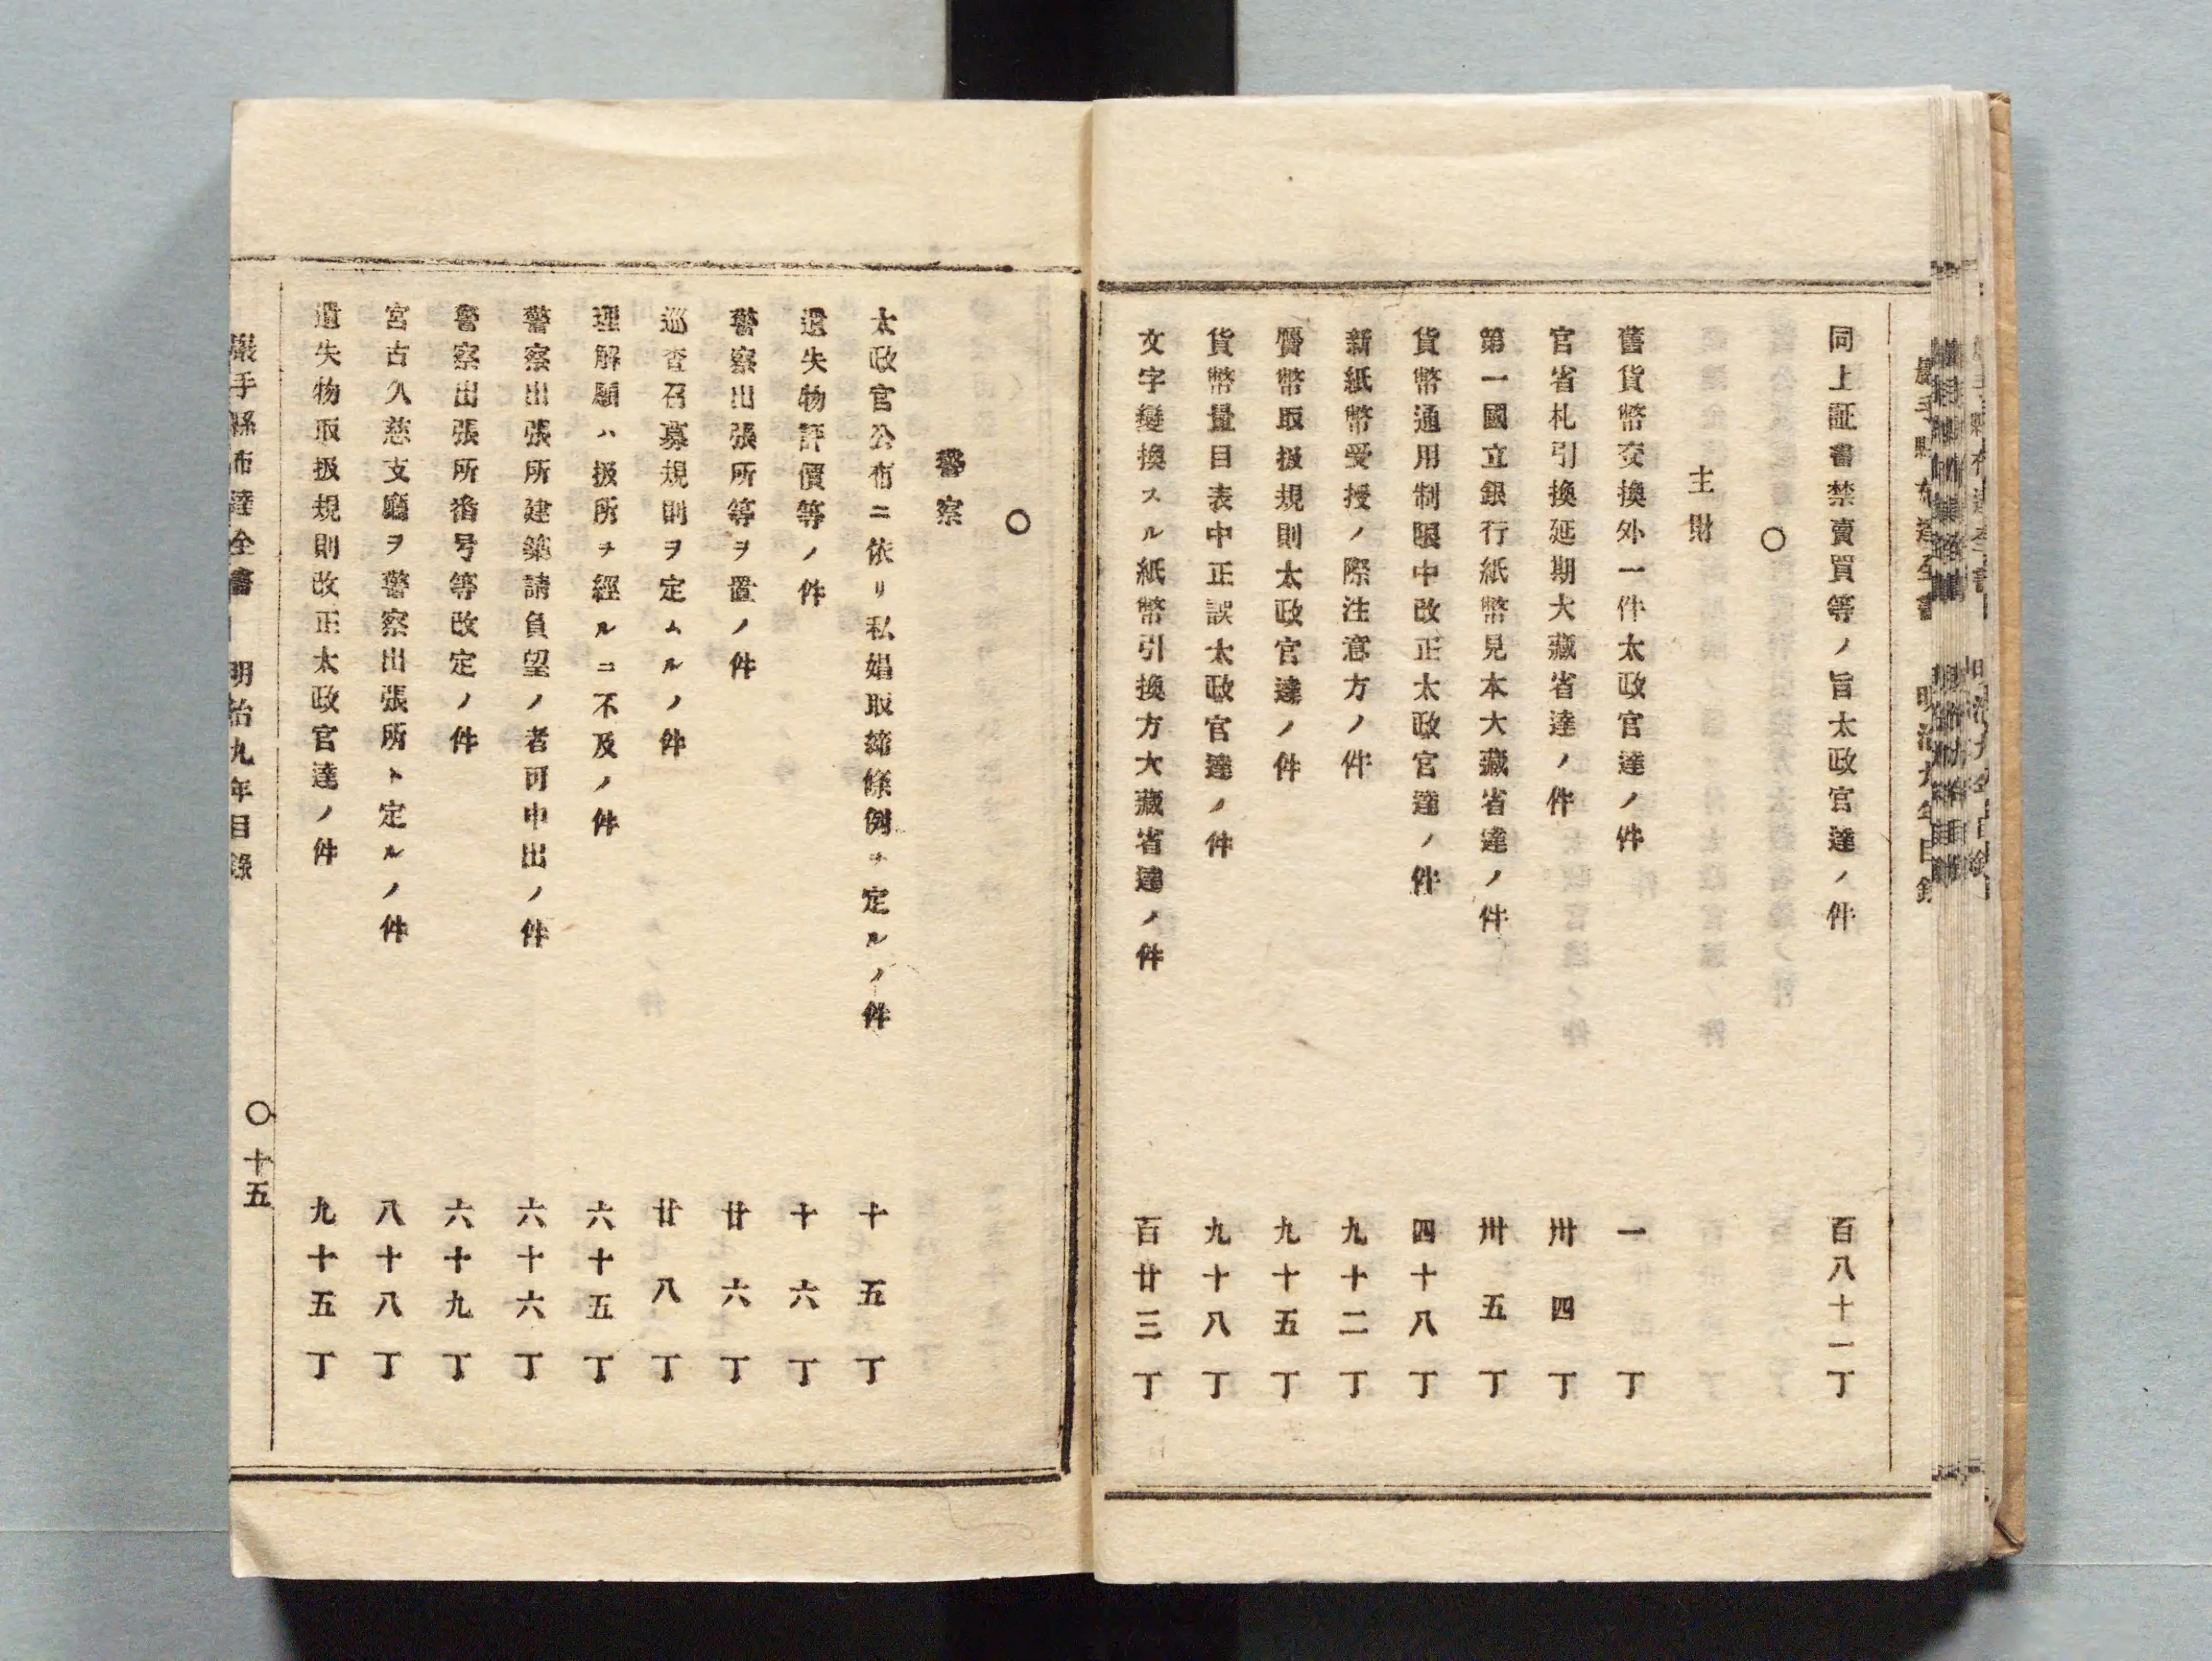 同上証書禁賣買等ノ旨太政官達ノ件 百八十一丁
○
主財
舊貨幣交換外一件太政官達ノ件 一丁
官省札引換延期大藏省達ノ件 卅四丁
第一國立銀行紙幣見本大藏省達ノ件 卅五丁
貨幣通用制限中改正太政官達ノ件 四十八丁
新紙幣受授ノ際注意方ノ件 九十二丁
贋幣取扱規則太政官達ノ件 九十五丁
貨幣量目表中正誤太政官達ノ件 九十八丁
文字變換スル紙幣引換方大藏省達ノ件 百廿三丁
○
警察
太政官公布ニ依リ私娼取締條例ヲ定ルノ件 十五丁
遺失物評價等ノ件 十六丁
警察出張所等ヲ置ノ件 廿六丁
巡査召募規則ヲ定ムルノ件 廿八丁
理解願ハ扱所ヲ經ルニ不及ノ件 六十五丁
警察出張所建築請負望ノ者可申出ノ件 六十六丁
警察出張所番号等改定ノ件 六十九丁
宮古久慈支廳ヲ警察出張所ト定ルノ件 八十八丁
遺失物取扱規則改正太政官達ノ件 九十五丁
巖手縣布達全書 明治九年目錄 ○十五